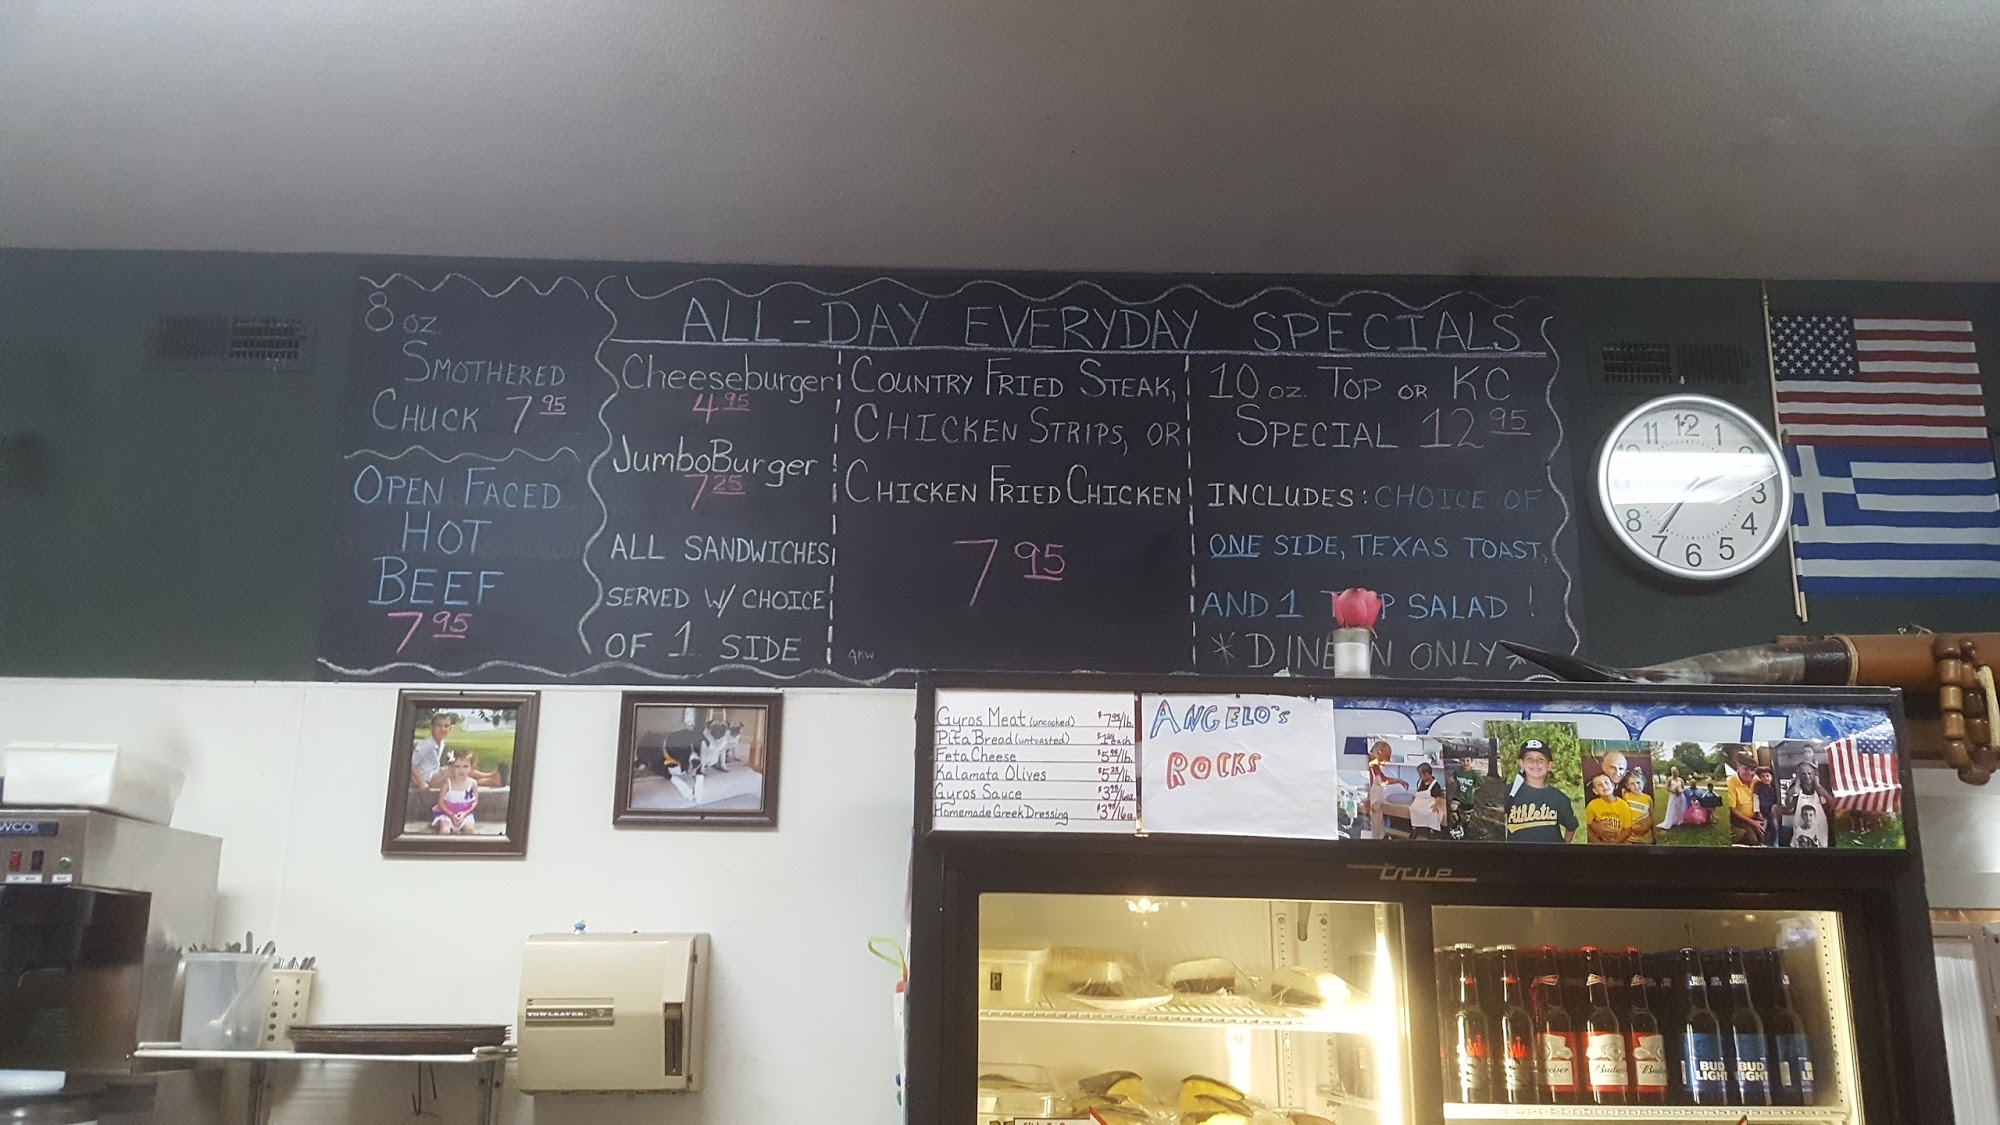 8 oz.
SMOTHERED
CHUCK 7 95
OPEN FACED
HOT
BEEF
7 95
ALL-DAY EVERYDAY SPECIALS
Cheeseburger
4 95
JumboBurger
7 25
ALL SANDWICHES
SERVED W/ CHOICE
OF 1 SIDE
COUNTRY FRIED STEAK,
CHICKEN STRIPS, OR
CHICKEN FRIED CHICKEN
7 95
10 oz. TOP OR KC
SPECIAL 12 95
INCLUDES: CHOICE OF
ONE SIDE, TEXAS TOAST,
AND 1 SALAD!
*DINE ONLY*
11 12 1
3
4
5
6
7
8
Gyros Meat (uncooked)
Pita Bread (untoasted)
Feta Cheese
Kalamata Olives
Gyros Sauce
Homemade Greek Dressing
ANGELO'S
ROCKS
Athletics
true
TOWLSAVER
P
BUD LIGHT
BUD LIGHT